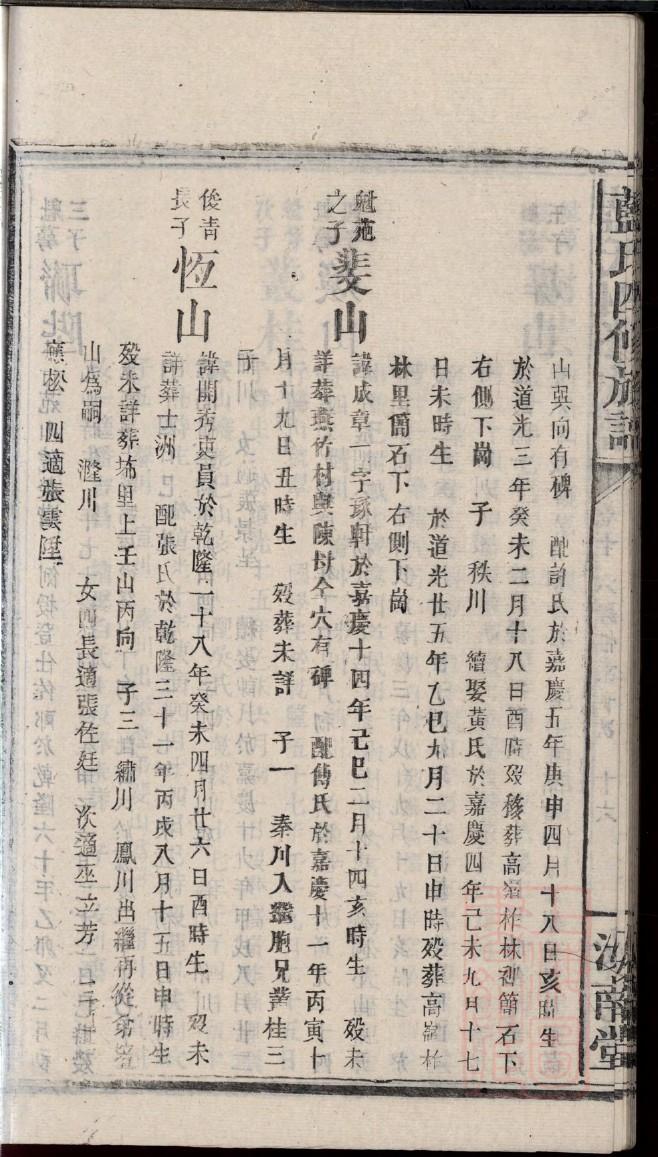 藍氏四修族譜
汝南堂
山巽向有碑 配許氏於嘉慶五年庚申四月十八日亥時生
於道光三年癸未二月十八日酉時歿移葬高嶺柞林裡筒石下
右側下崗 子 秩川 繼娶黃氏於嘉慶四年己未九月十七
日未時生 於道光廿五年乙巳九月二十日申時歿葬高嶺柞
林里筒石下右側下崗
魁苑之子
斐山
諱成章 字琢軒於嘉慶十四年己巳二月十四亥時生 歿未
詳葬燕竹村與陳母仝穴有碑 配傅氏於嘉慶十一年丙寅十
月十九日丑時生 歿葬未詳 子一 秦川入繼胞兄 桂三
子
俊青長子
恆山
諱開秀吏員於乾隆二十八年癸未四月廿六日酉時生 歿未
詳葬士洲 配張氏於乾隆三十一年丙戌八月十五日申時生
歿未詳葬 里上壬山丙向 子三 繡川 鳳川出繼再從弟
山為嗣 川 女四長適張佐廷 次適巫立芳 三適
松 四適張雲陞